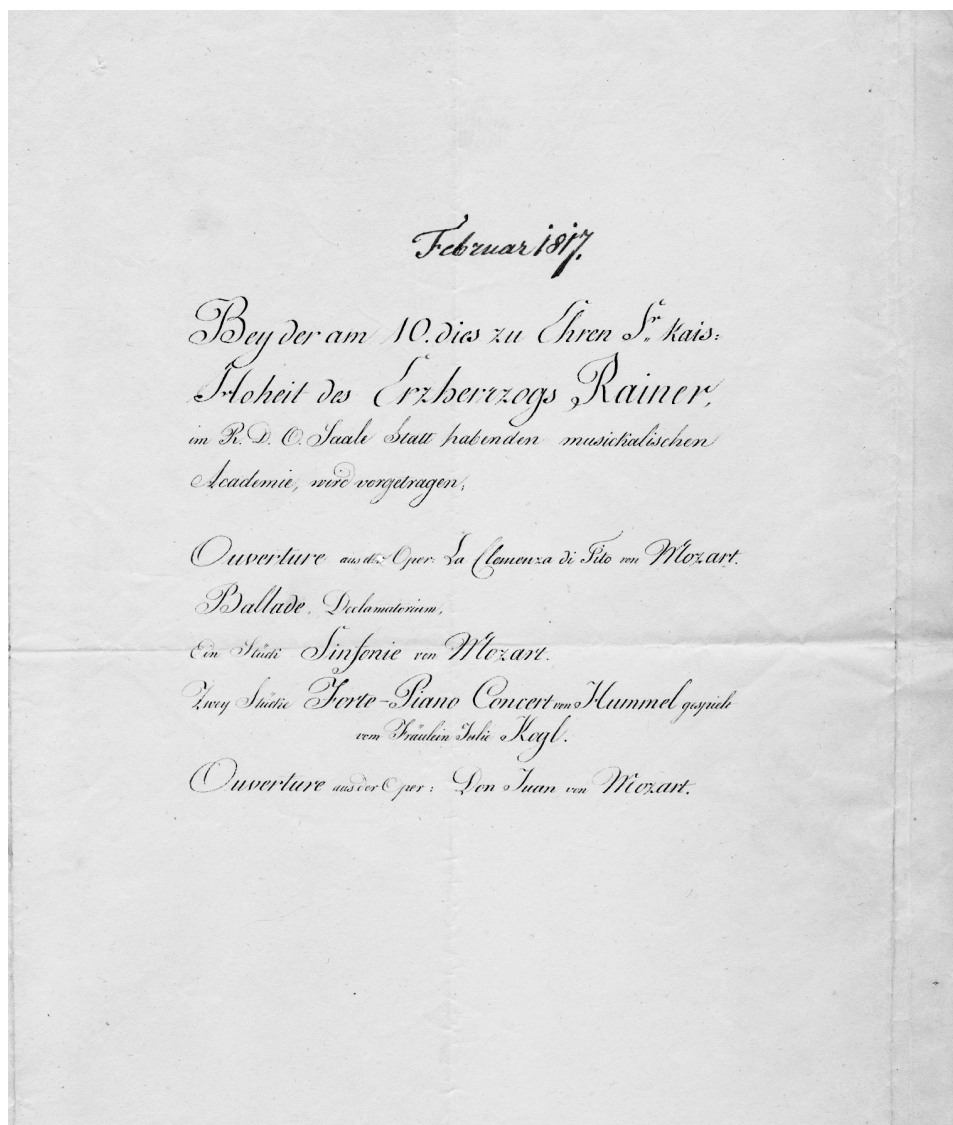 Februar 1817.
Bey der am 10. dies zu Ehren Sr. kais:
Hoheit des Erzherzogs Rainer,
im R. D. O. Saale Statt habenden musickalischen
Academie, wird vorgetragen;
Ouverture aus der Oper: La Clemenza di Tito von Mozart.
Ballade, Declamatorium,
Ein Stück Sinfonie von Mozart.
Zwey Stücke Forto-Piano Concert von Hummel gespielt
vom Fräulein Julie Kogl.
Ouverture aus der Oper: Don Juan von Mozart.